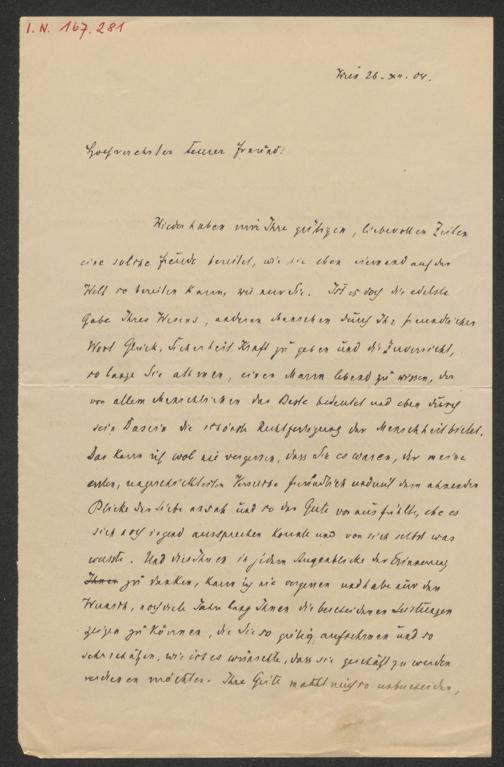 I. N. 167.281
Wien 26. XII. 04.
Hochverehrter teurer Freund!
Wieder haben mir Ihre gütigen, liebevollen Zeilen
eine solche Freude bereitet, wie sie eben niemand auf der
Welt so bereiten kann, wie nur Sie. Ist es doch die edelste
Gabe Ihres Wesens, anderen Menschen durch Ihr freundliches
Wort Glück, Sicherheit, Kraft zu geben und die Zuversicht,
so lange Sie atmen, einen Mann lebend zu wissen, der
von allem Menschlichen das Beste bedeutet und eben durch
sein Dasein die schönste Rechtfertigung der Menschheit bietet.
Das kann ich wol nie vergessen, dass Sie es waren, der meine
ersten, ungeschicktesten Versuche freundlich und mit dem ahnenden
Blicke der Liebe ansah und so das Gute voraus fühlte, ehe es
sich noch irgend aussprechen konnte und von sich selbst was
wusste. Und dies Ihnen in jedem Augenblicke der Erinnerung
Ihnen zu danken, kann ich nie vergessen und habe nur den
Wunsch, noch viele Jahre lang Ihnen die bescheidenen Leistungen
zeigen zu können, die Sie so gütig aufnehmen und so
sehr schätzen, wie ich es wünschte, dass sie geschätzt zu werden
verdienen möchten. Ihre Güte macht mich so unbescheiden,